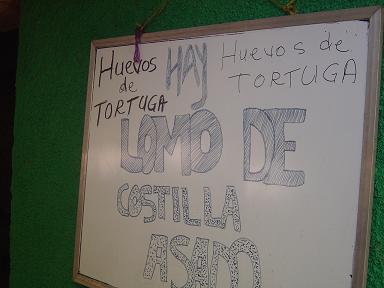 Huevos
de
TORTUGA
HAY
Huevos de
TORTUGA
LOMO DE
COSTILLA
ASADO